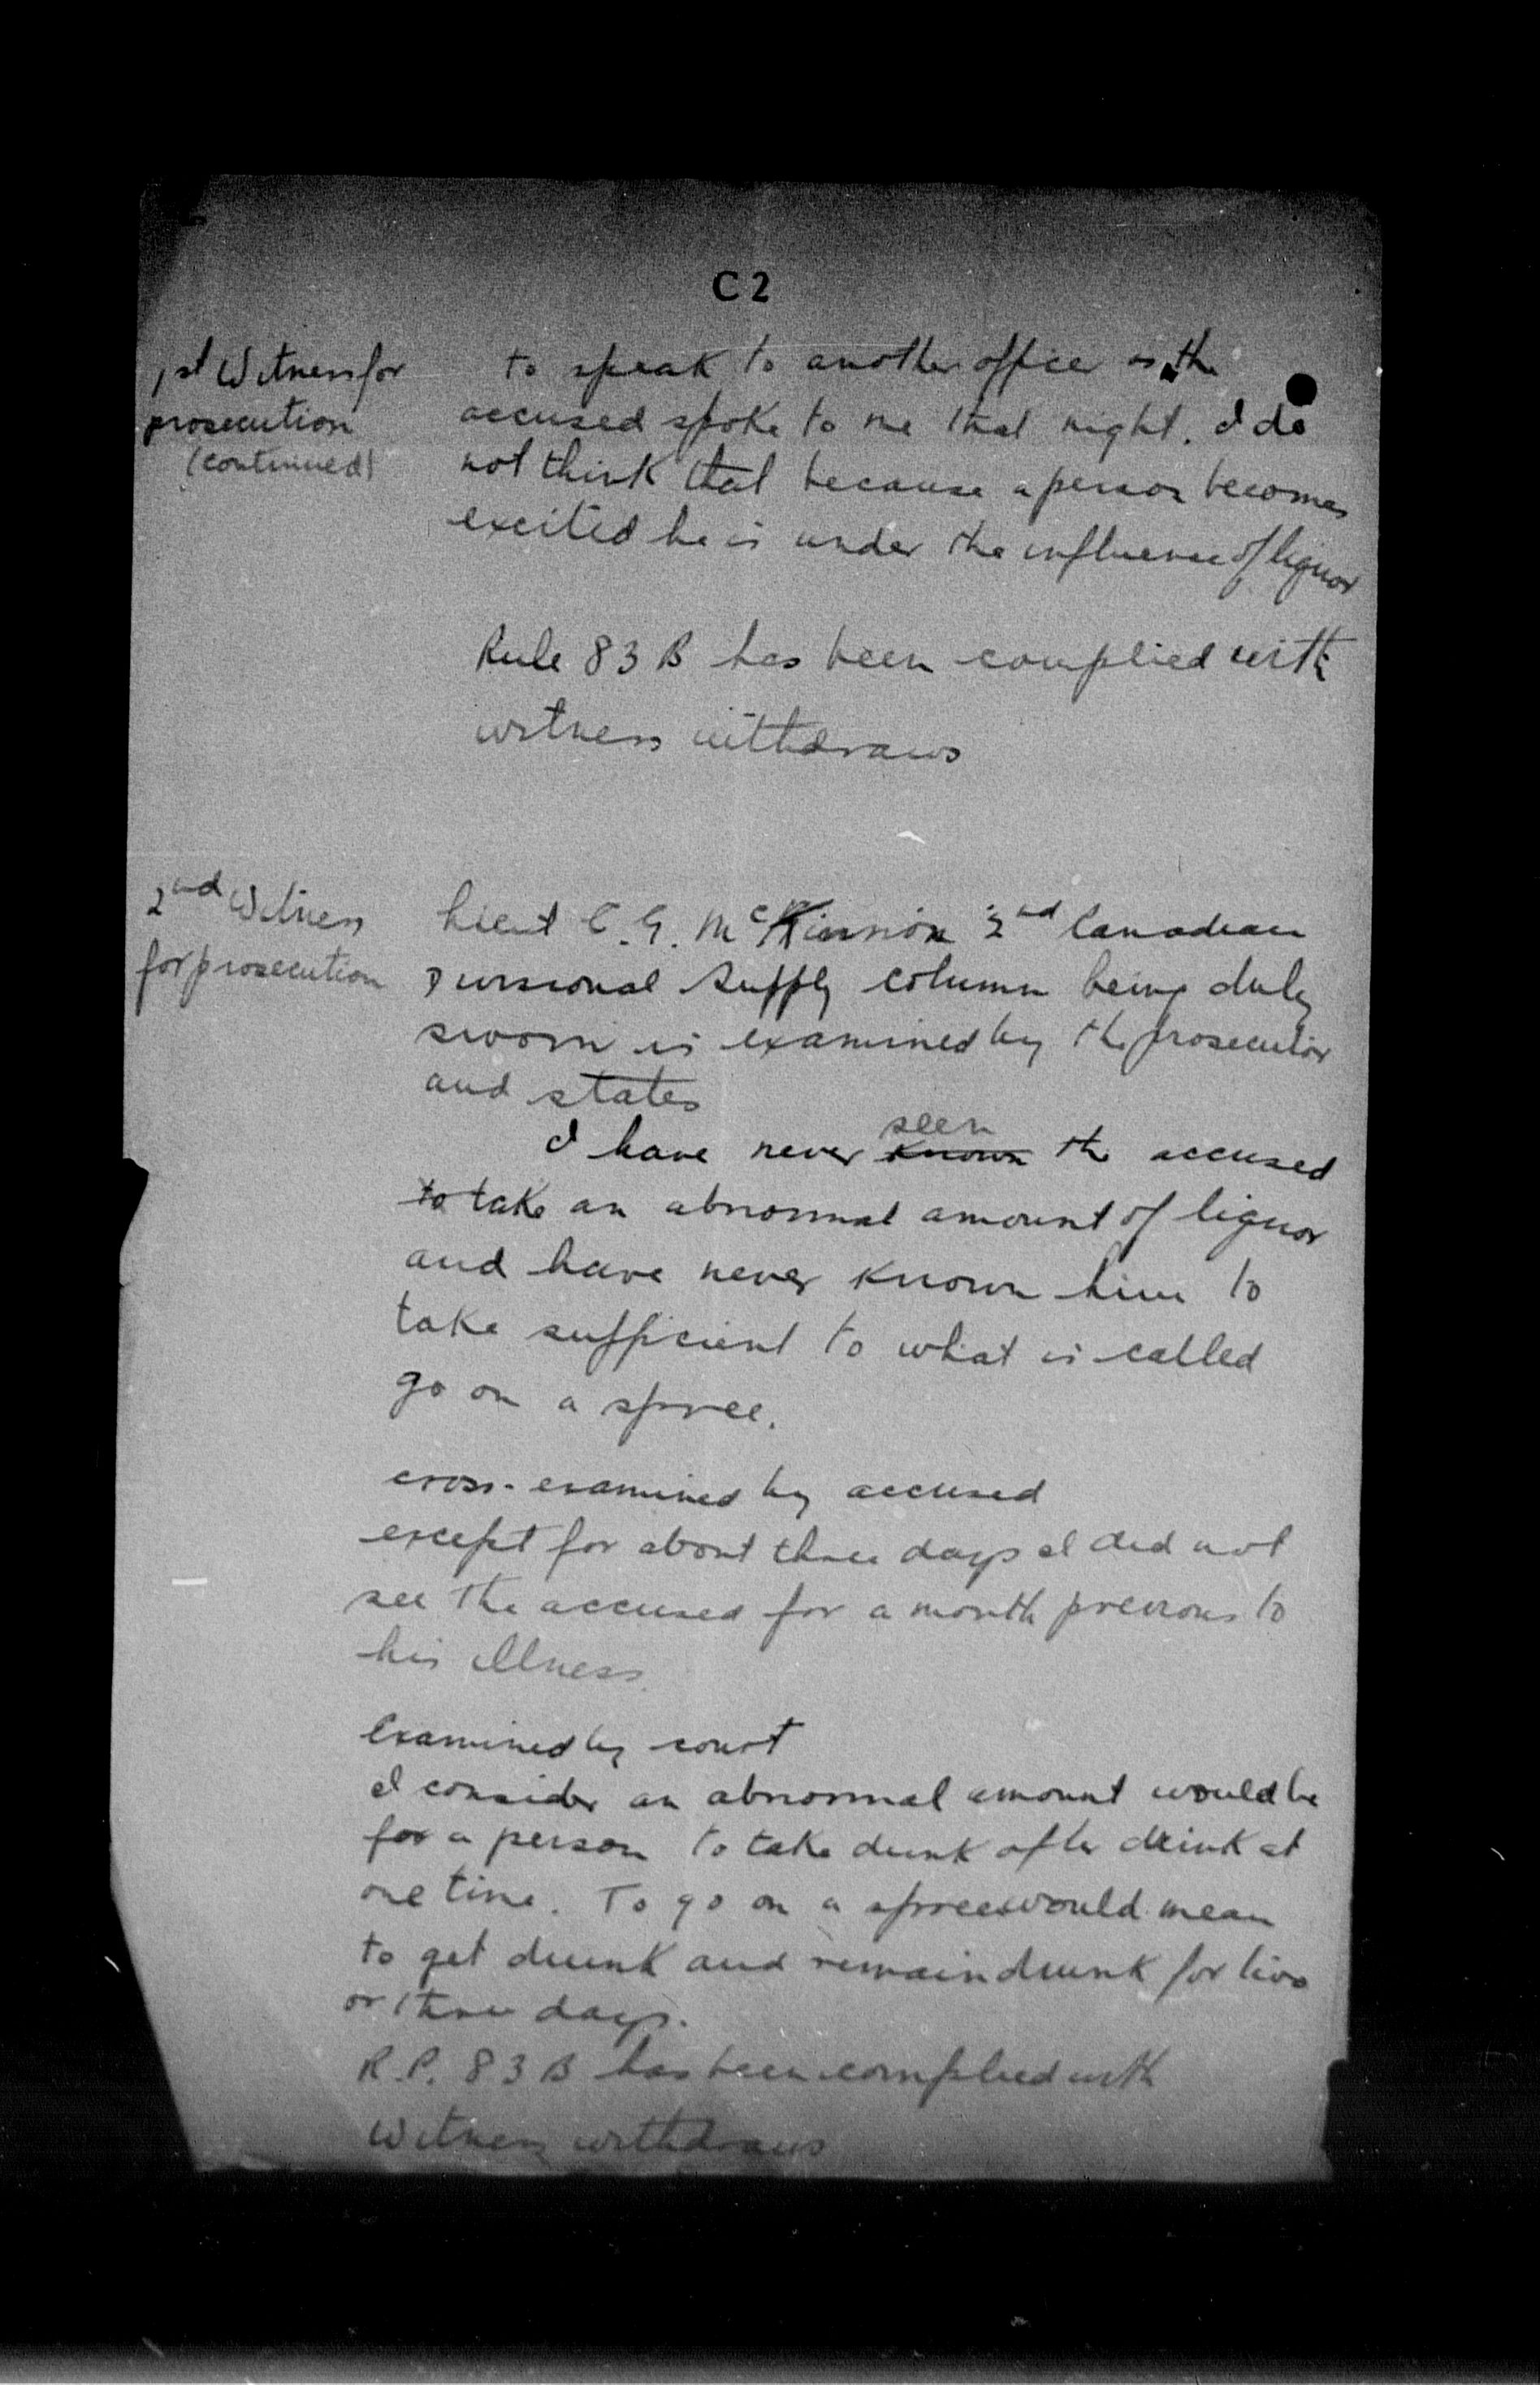 C2
1st Witness for
prosecution
(continued)
to speak to another officer as the
accused spoke to me that night. I do
not think that because a person becomes
excited he is under the influence of liquor
Rule 83 B has been complied with
witness withdraws
2nd Witness
for prosecution
Lieut C. G. McKinnon 2nd Canadian
Divisional Supply column being duly
sworn is examined by the prosecutor
and states
seen
I have never known the accused
to take an abnormal amount of liquor
and have never known him to
take sufficient to what is called
go on a spree.
cross-examined by accused
except for about three days I did not
see the accused for a month previous to
his illness.
Examined by court
I consider an abnormal amount would be
for a person to take drink after drink at
one time. To go on a spree would mean
to get drunk and remain drunk for two
or three days.
R.P. 83 B has been complied with
Witness withdraws